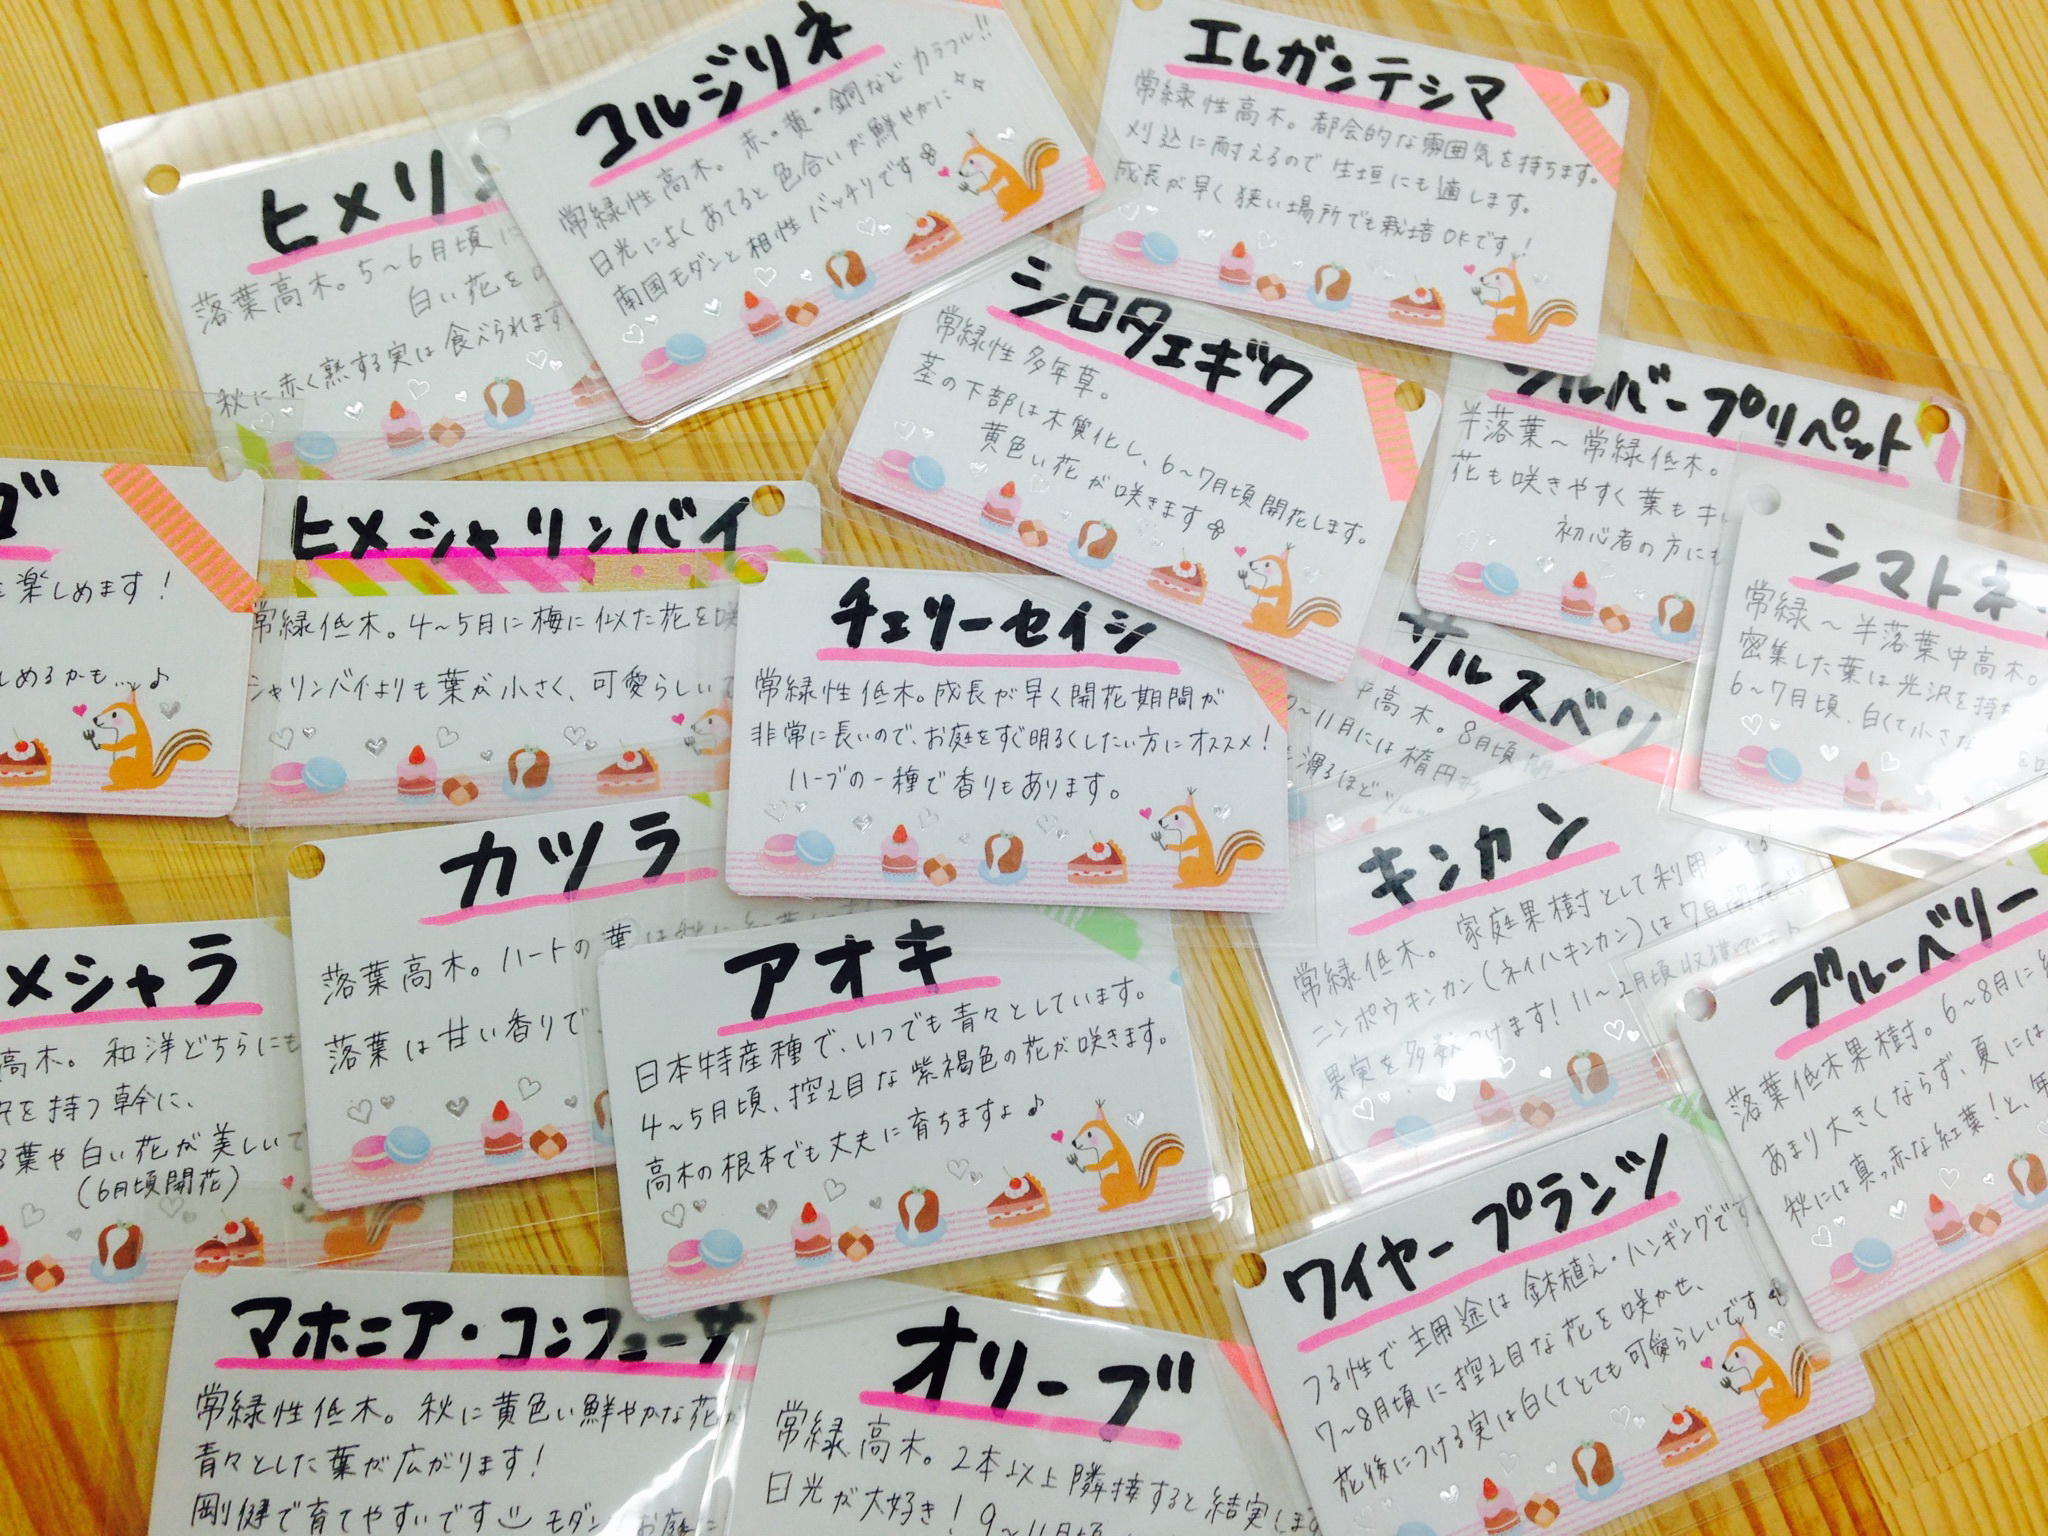 ヒメリン
落葉高木。5〜6月頃に
白い花を
秋に赤く熟する実は食べられます
コルジリネ
常緑性高木。赤・黄・銅などカラフル!!
日光によくあてると色合いが鮮やかに
南国モダンと相性バッチリです
エレガンテシマ
常緑性高木。都会的な雰囲気を持ちます。
刈込に耐えるので生垣にも適します。
成長が早く狭い場所でも栽培OKです!
シロタエギク
常緑性多年草。
茎の下部は木質化し、6〜7月頃開花します。
黄色い花が咲きます
シルバープリペット
半落葉〜常緑低木。
花も咲きやすく葉もキ
初心者の方にも
シマトネ
常緑〜半落葉中高木。
密集した葉は光沢を持ち
6〜7月頃、白くて小さな
楽しめます!
しめるかも…♪
ヒメシャリンバイ
常緑低木。4〜5月に梅に似た花を咲
シャリンバイよりも葉が小さく、可愛らしいで
チェリーセイジ
常緑性低木。成長が早く開花期間が
非常に長いので、お庭をすぐ明るくしたい方にオススメ!
ハーブの一種で香りもあります。
サルスベリ
中高木。8月頃開
〜11月には楕円形
滑るほどツルツ
カツラ
落葉高木。ハートの葉は秋に
落葉は甘い香りで
キンカン
常緑低木。家庭果樹として利用
ニンポウキンカン(ネイハキンカン)は7月開花で、
果実を多数つけます!11〜2月頃収穫
メシャラ
高木。和洋どちらにも
を持つ幹に、
葉や白い花が美しいで
(6月頃開花)
アオキ
日本特産種で、いつでも青々としています。
4〜5月頃、控え目な紫褐色の花が咲きます。
高木の根本でも丈夫に育ちますよ♪
ブルーベリー
落葉低木果樹。6〜8月に
あまり大きくならず、夏には
秋には真っ赤な紅葉!と、年
マホニア・コンフューサ
常緑性低木。秋に黄色い鮮やかな花が
青々とした葉が広がります!
剛健で育てやすいです モダン お庭に
オリーブ
常緑高木。2本以上隣接すると結実します
日光が大好き!9〜11月頃
ワイヤープランツ
つる性で主用途は鉢植え・ハンギングです
7〜8月頃に控え目な花を咲かせ、
花後につける実は白くてとても可愛らしいです♪